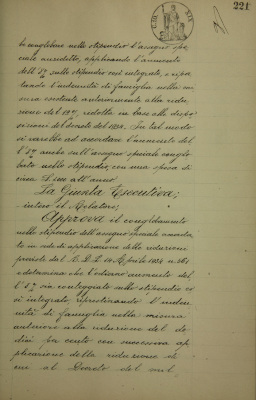 221
conglobare nello stipendio l'assegno spe
ciale suddetto, applicando l'aumento
dell'8% sullo stipendio così integrato, e ripor
tando l'indennità di famiglia nella mi
sura constante anteriormente alla ridu
zione del 12% ridotta in base alle dispo
sizioni del decreto del 1934. In tal modo
si verrebbe ad accordare l'aumento del
l'8% anche sull'assegno speciale conglo
bato nello stipendio, con una spesa di
circa Lire all'anno.
La Giunta Esecutiva;
inteso il Relatore;
Approva il conglobamento
nello stipendio dell'assegno speciale
in sede di applicazione della riduzione
prevista del R.D.L. 14 Aprile 1934 n. 561
e determina che l'aumento del
l'8% sia conteggiato sullo stipendio co
sì integrato ripristinando l'inden
nità di famiglia nella misura
anteriore alla riduzione del do
dici per cento con successiva ap
plicazione della riduzione di
cui al Decreto del